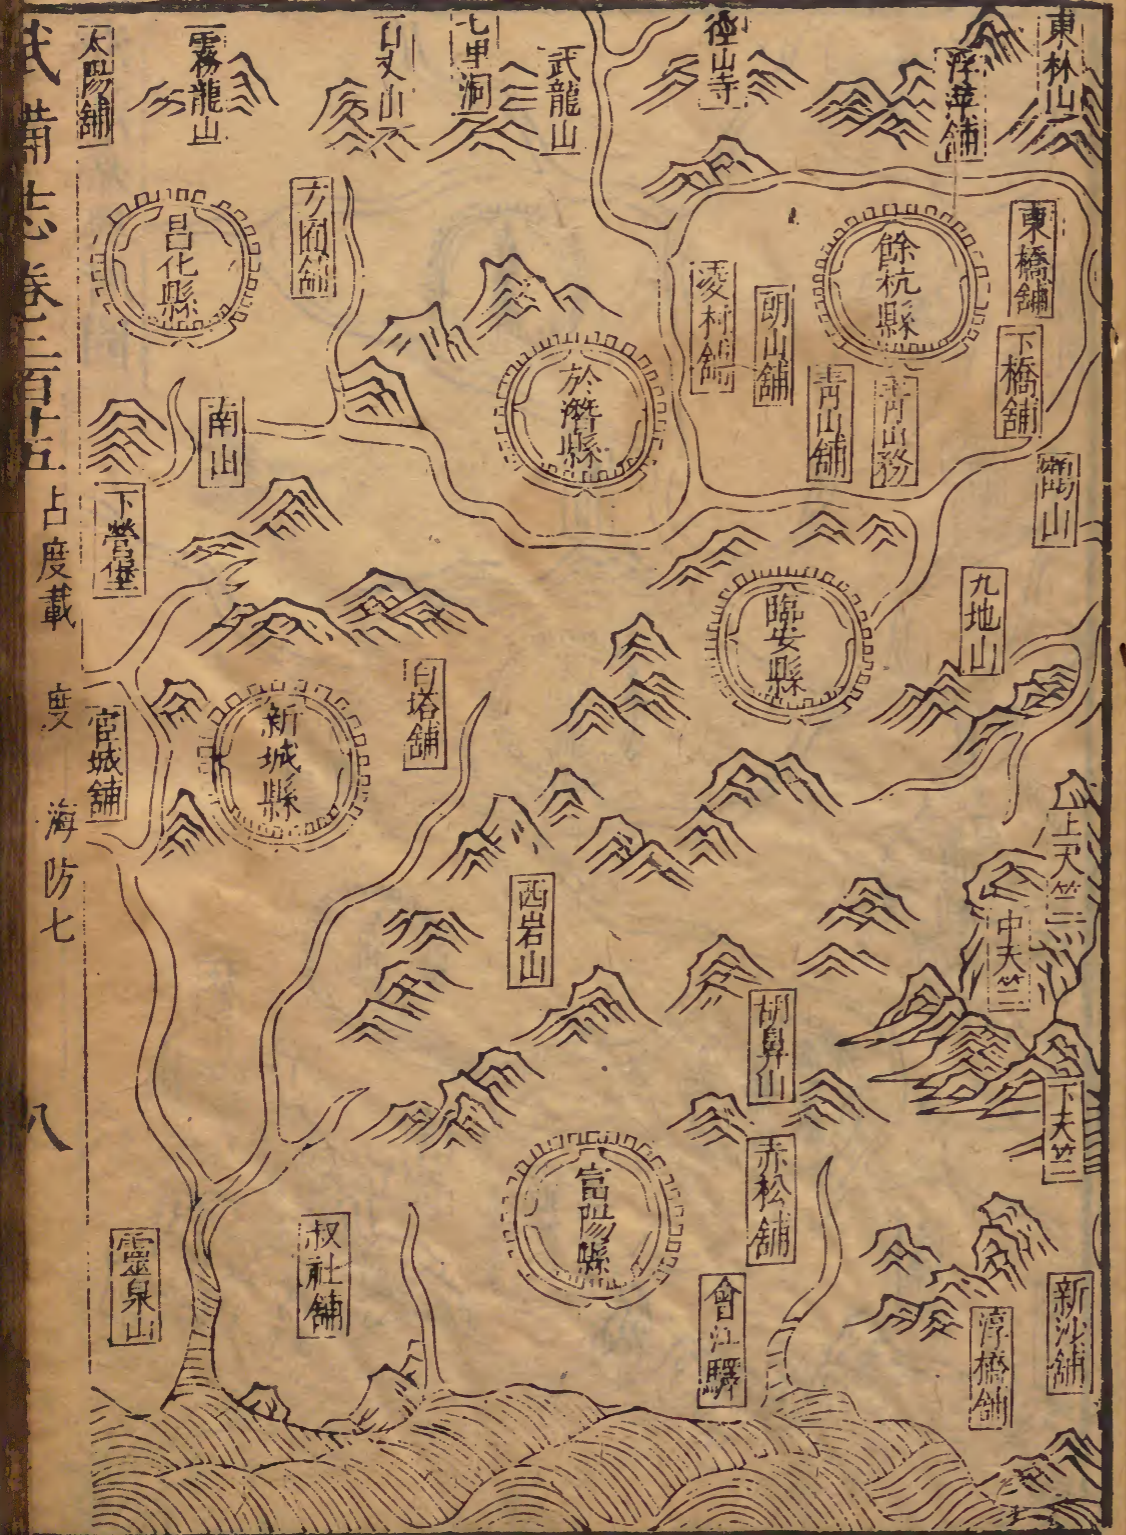 東林山
浮萍舖
徑山寺
武龍山
七里洞
百丈山
霧龍山
太陽舖
東橋舖
餘杭縣
下橋舖
朗山舖
凌村舖
青山舖
青山務
方圓舖
昌化縣
於潛縣
南山
下營堡
臨安縣
九地山
白塔舖
新城縣
官城舖
上天竺
中天竺
下天竺
西岩山
胡鼻山
赤松舖
富陽縣
會江驛
新沙舖
淳橋舖
叔社舖
靈泉山
武備志卷二百十五
占度載 度 海防七
八